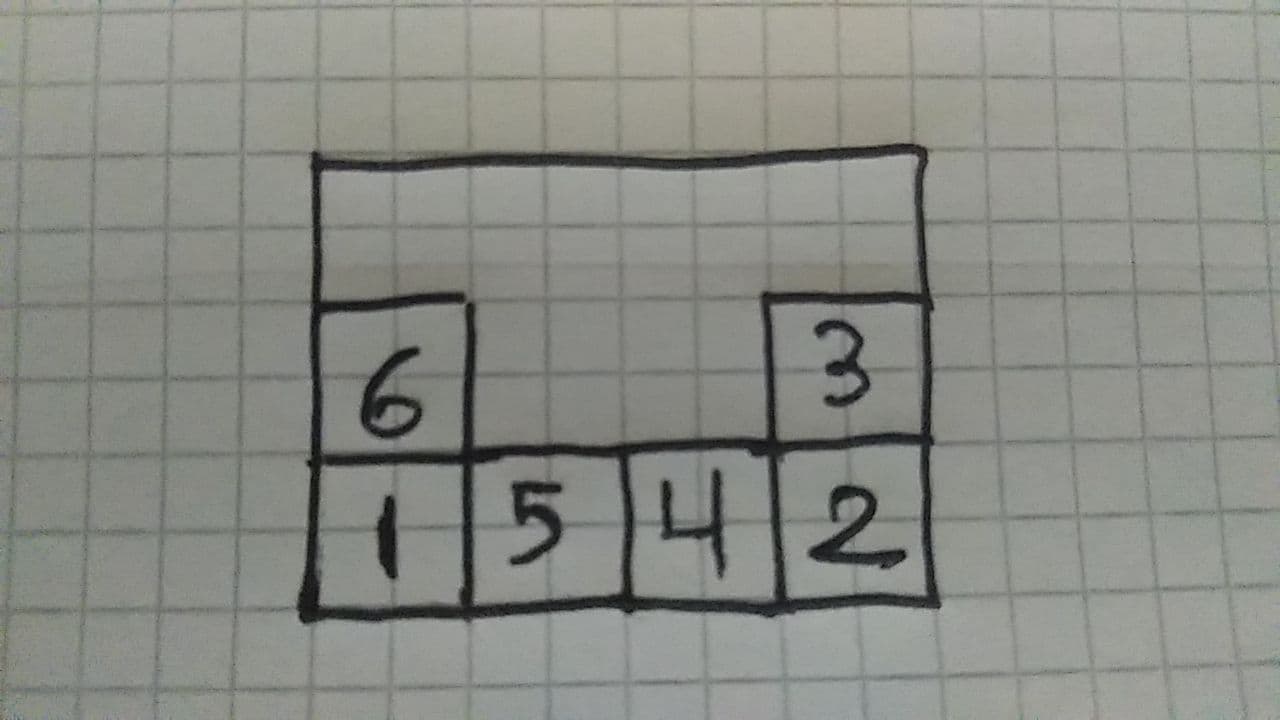 6 3
1 5 4 2